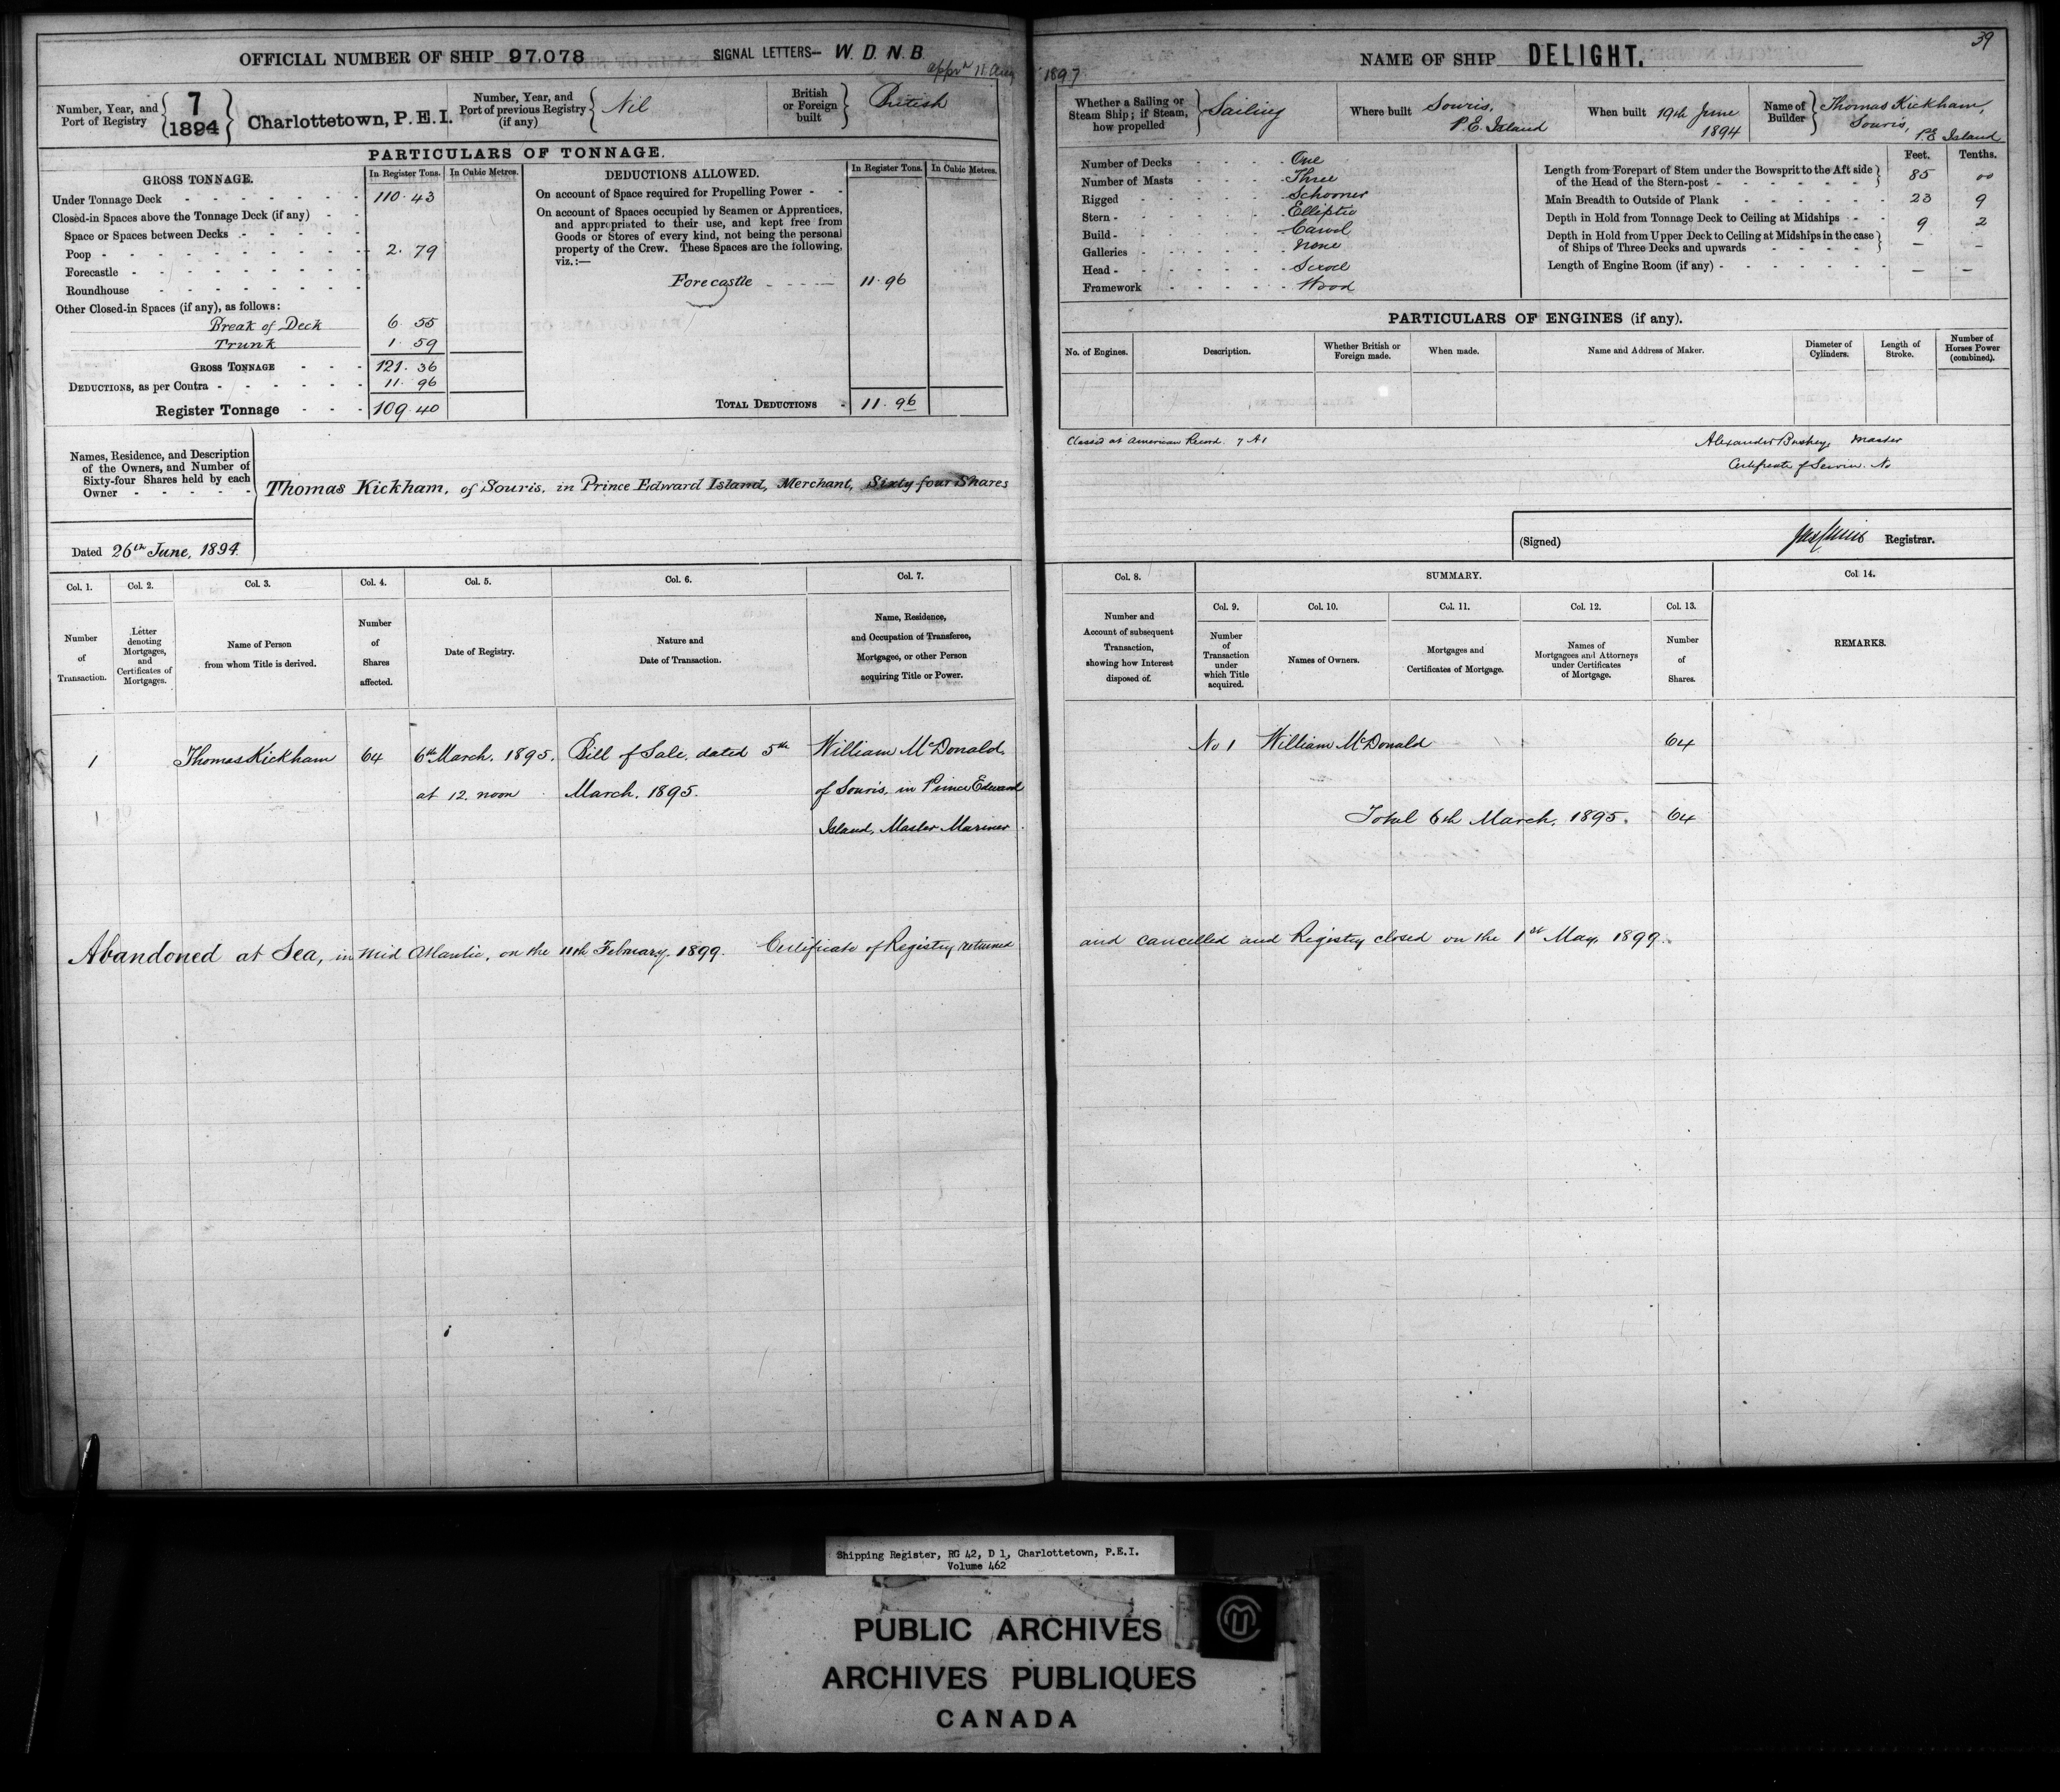 OFFICIAL NUMBER OF SHIP 97,078 SIGNAL LETTERS— W. D. N. B.
1897
Number, Year, and Port of Registry 7 1894 Charlottetown, P.E.I.
Number, Year, and Port of previous Registry (if any) Nil
British or Foreign built British
PARTICULARS OF TONNAGE.
GROSS TONNAGE. In Register Tons. In Cubic Metres.
Under Tonnage Deck 110.43
Closed-in Spaces above the Tonnage Deck (if any)
Space or Spaces between Decks
Poop 2.79
Forecastle
Roundhouse
Other Closed-in Spaces (if any), as follows:
Break of Deck 6.55
Trunk 1.59
GROSS TONNAGE 121.36
DEDUCTIONS, as per Contra 11.96
Register Tonnage 109.40
DEDUCTIONS ALLOWED. In Register Tons. In Cubic Metres.
On account of Space required for Propelling Power
On account of Spaces occupied by Seamen or Apprentices,
and appropriated to their use, and kept free from
Goods or Stores of every kind, not being the personal
property of the Crew. These Spaces are the following,
viz.:—
Forecastle 11.96
TOTAL DEDUCTIONS 11.96
Names, Residence, and Description
of the Owners, and Number of
Sixty-four Shares held by each
Owner
Thomas Kickham, of Souris, in Prince Edward Island, Merchant, Sixty-four Shares
Dated 26th June, 1894
Col. 1. Col. 2. Col. 3. Col. 4. Col. 5. Col. 6. Col. 7.
Number of Transaction.
Letter denoting Mortgages, and Certificates of Mortgages.
Name of Person from whom Title is derived.
Number of Shares affected.
Date of Registry.
Nature and Date of Transaction.
Name, Residence, and Occupation of Transferee, Mortgagee, or other Person acquiring Title or Power.
1 Thomas Kickham 64 6th March, 1895. Bill of Sale, dated 5th William McDonald,
at 12 noon March, 1895. of Souris, in Prince Edward
Island, Master Mariner
Abandoned at Sea, in Mid Atlantic, on the 11th February, 1899. Certificate of Registry returned
39
NAME OF SHIP DELIGHT.
Whether a Sailing or Steam Ship; if Steam, how propelled Sailing
Where built Souris, P.E. Island
When built 19th June 1894
Name of Builder Thomas Kickham, Souris, P.E Island
Number of Decks One
Number of Masts Three
Rigged Schooner
Stern Elliptic
Build Carvel
Galleries None
Head Scroll
Framework Wood
Feet. Tenths.
Length from Forepart of Stem under the Bowsprit to the Aft side
of the Head of the Stern-post 85 00
Main Breadth to Outside of Plank 23 9
Depth in Hold from Tonnage Deck to Ceiling at Midships 9 2
Depth in Hold from Upper Deck to Ceiling at Midships in the case
of Ships of Three Decks and upwards — —
Length of Engine Room (if any) — —
PARTICULARS OF ENGINES (if any).
No. of Engines. Description. Whether British or Foreign made. When made. Name and Address of Maker. Diameter of Cylinders. Length of Stroke. Number of Horses Power (combined).
Classed at American Record. 7 A1
Alexander Bushey, Master
Certificate of Service. No
(Signed) Registrar.
Col. 8. SUMMARY. Col 14.
Col. 9. Col. 10. Col. 11. Col. 12. Col. 13.
Number and Account of subsequent Transaction, showing how Interest disposed of.
Number of Transaction under which Title acquired.
Names of Owners.
Mortgages and Certificates of Mortgage.
Names of Mortgagees and Attorneys under Certificates of Mortgage.
Number of Shares.
REMARKS.
No 1 William McDonald 64
Total 6th March, 1895. 64
and cancelled and Registry closed on the 1st May, 1899.
Shipping Register, RG 42, D 1, Charlottetown, P.E.I.
Volume 462
PUBLIC ARCHIVES
ARCHIVES PUBLIQUES
CANADA